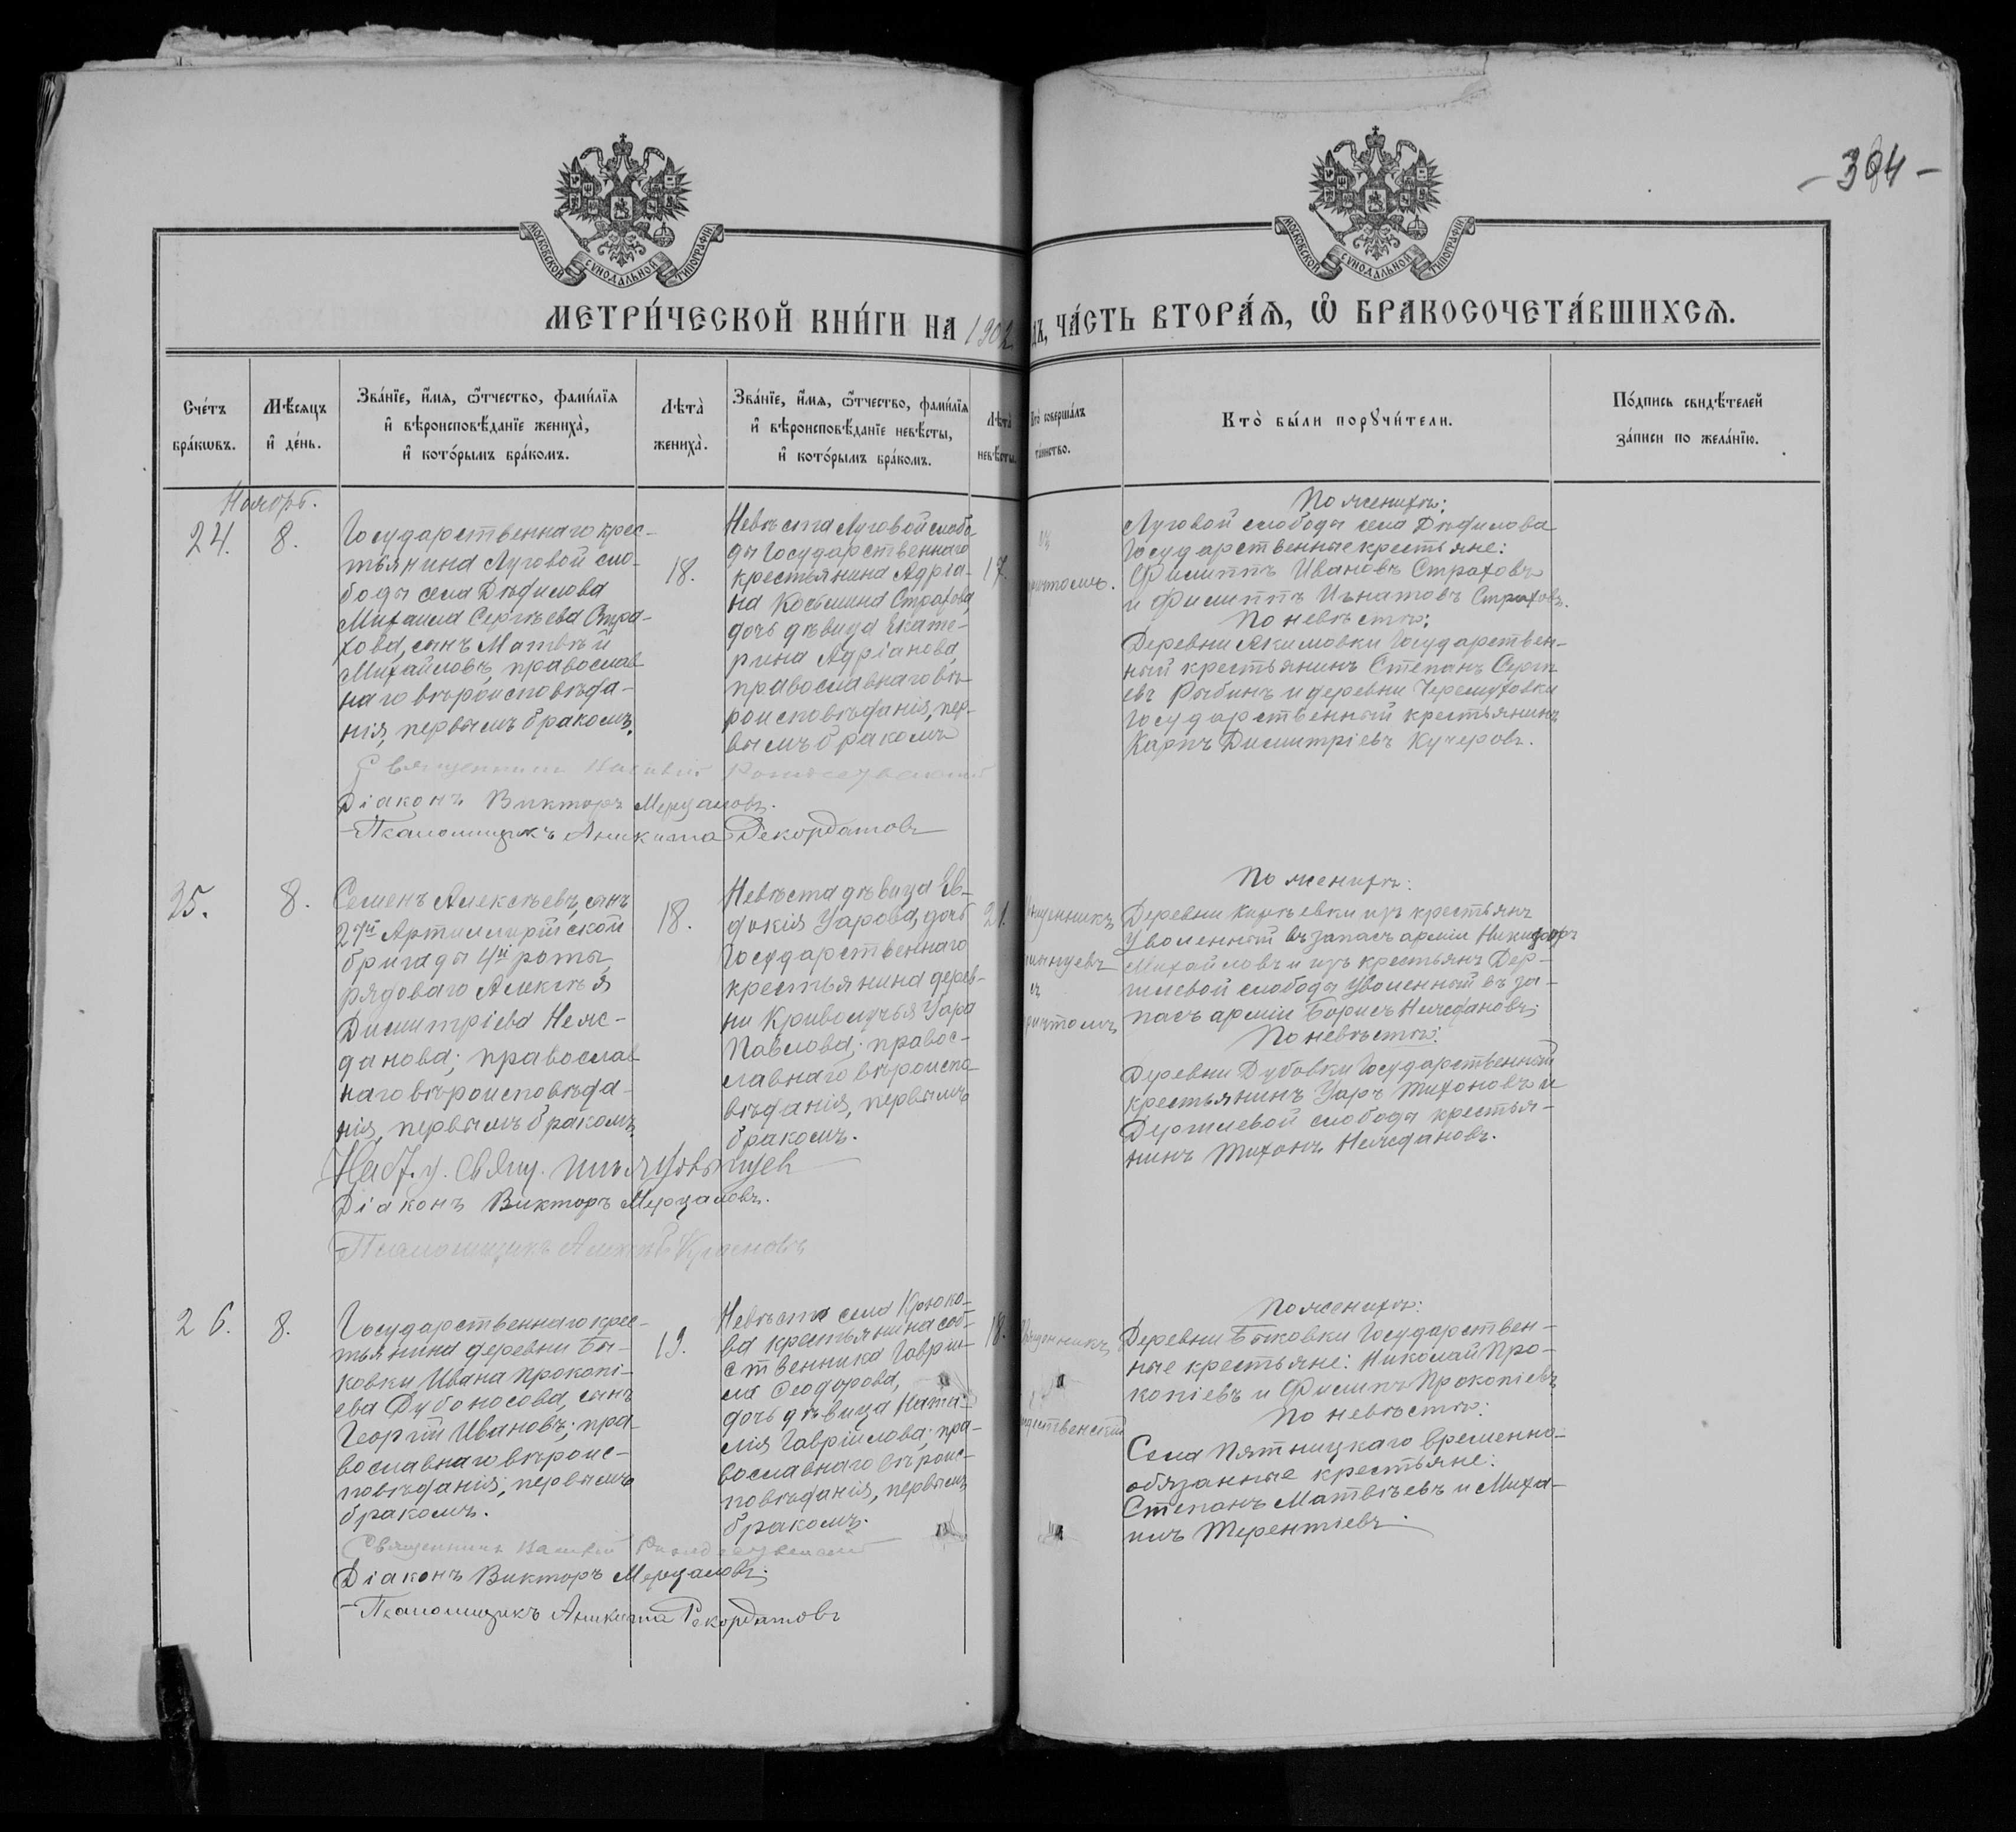 - 394 -
МОСКОВСКОЙ СѴНОДАЛЬНОЙ ТИПОГРАФІИ
МОСКОВСКОЙ СѴНОДАЛЬНОЙ ТИПОГРАФІИ
МЕТРИ́ЧЕСКОЙ КНИ́ГИ НА 1902 ДЪ, ЧА́СТЬ ВТОРА́Ѧ, Ѽ БРАКОСОЧЕТА́ВШИХСѦ.
Сче́тъ
бра́кѡвъ.
Мѣ́сѧцъ
и҆ де́нь.
Зва́нїе, и҆́мѧ, ѻ҆́тчество, фами́лїѧ
и҆ вѣроисповѣ́данїе жениха̀,
и҆ кото́рымъ бра́комъ.
Лѣта̀
жениха̀.
Зва́нїе, и҆́мѧ, ѻ҆́тчество, фами́лїѧ
и҆ вѣроисповѣ́данїе невѣ́сты,
и҆ кото́рымъ бра́комъ.
Лѣта̀
невѣ́сты.
Кто̀ соверша́лъ
та́инство.
Кто̀ бы́ли порꙋчи́тели.
По́дпись свидѣ́телей
за́писи по жела́нїю.
Ноябрь.
24.
8.
Государственнаго крес-
тьянина Луговой сло-
боды села Дѣдилова
Михаила Сергѣева Стра-
хова, сынъ Матвѣй
Михайловъ, православ-
наго вѣроисповѣда-
нія, первымъ бракомъ.
18.
Невѣста Луговой слобо-
ды Государственнаго
крестьянина Адріа-
на Косьмина Страхова,
дочь дѣвица Екате-
рина Адріанова,
православнаго вѣ-
роисповѣданія, пер-
вымъ бракомъ
17.
причтомъ.
По женихѣ:
Луговой слободы села Дѣдилова
Государственные крестьяне:
Филиппъ Ивановъ Страховъ
и Филиппъ Игнатовъ Страховъ.
По невѣстѣ:
Деревни Акимовки Государствен-
ный крестьянинъ Степанъ Сергѣ-
евъ Рыбинъ и деревни Черемуховки
Государственный крестьянинъ
Карпъ Димитріевъ Кучеровъ.
Священникъ Василій Рождественскій
Діаконъ Викторъ Мерцаловъ.
Псаломщикъ Аникита Рекордатовъ
25.
8.
Семенъ Алексѣевъ, сынъ
27й Артиллерійской
бригады 4й роты,
рядоваго Алексѣя
Димитріева Неж-
данова; православ-
наго вѣроисповѣда-
нія, первымъ бракомъ.
18.
Невѣста дѣвица Ев-
докія Уарова, дочь
Государственнаго
крестьянина дерев-
ни Криволучья Уара
Павлова; правос-
лавнаго вѣроиспо-
вѣданія, первымъ
бракомъ.
21.
причтомъ
По женихѣ:
Деревни Кирѣевки изъ крестьянъ
Уволенный въ запасъ арміи Никифоръ
Михайловъ и изъ крестьянъ Дер-
жиевой слободы Уволенный въ за-
пасъ арміи Борисъ Неждановъ;
По невѣстѣ:
Деревни Дубовки Государственный
крестьянинъ Уаръ Тихоновъ и
Держиевой слободы крестья-
нинъ Тихонъ Неждановъ.
Діаконъ Викторъ Мерцаловъ.
Псаломщикъ Алексѣй
26.
8.
Государственнаго крес-
тьянина деревни Бы-
ковки Ивана Прокопі-
ева Дубоносова, сынъ
Георгій Ивановъ; пра-
вославнаго вѣроис-
повѣданія, первымъ
бракомъ.
19.
Невѣста села Крюко-
ва крестьянина соб-
ственника Гаврии-
ла Ѳеодорова,
дочь дѣвица Ната-
лія Гавріилова; пра-
вославнаго вѣроис-
повѣданія, первымъ
бракомъ.
18.
Священникъ
Рождественскій
По женихѣ:
Деревни Быковки Государствен-
ные крестьяне: Николай Про-
копіевъ и Филипъ Прокопіевъ
По невѣстѣ:
Села Пятницкаго временно-
обязанные крестьяне:
Степанъ Матвѣевъ и Миха-
илъ Терентіевъ.
Священникъ Василій Рождественскій
Діаконъ Викторъ Мерцаловъ.
Псаломщикъ Аникита Рекордатовъ